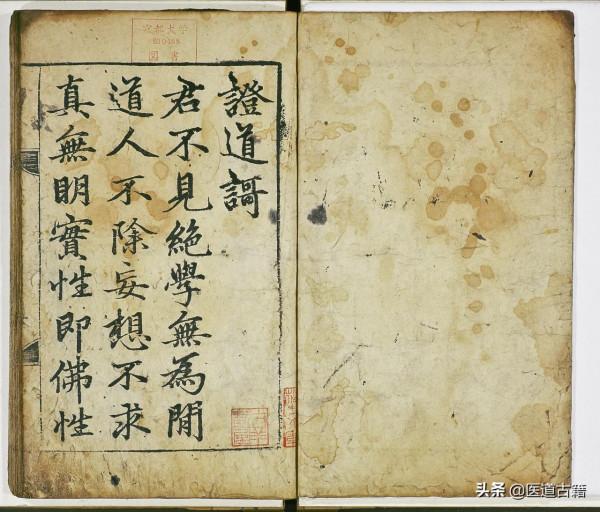 證道謌
君不見絶學無為閒
道人不除妄想不求
真無明實性即佛性
京都大学
図書
头条 @医道古籍